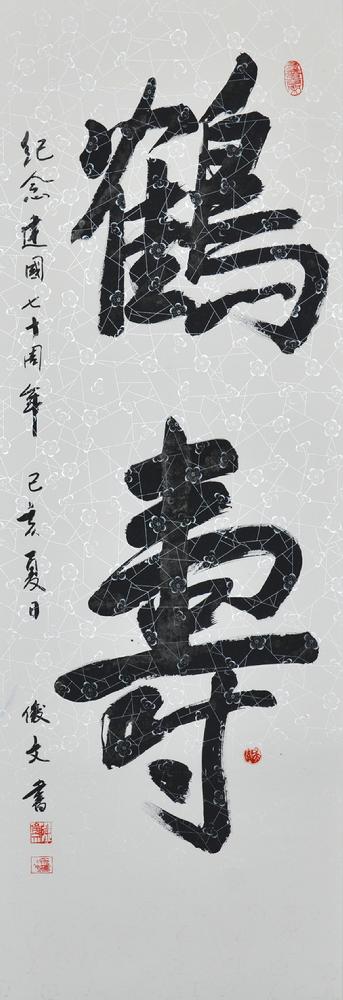 鶴壽
紀念建國七十周年 己亥夏日 俊文書